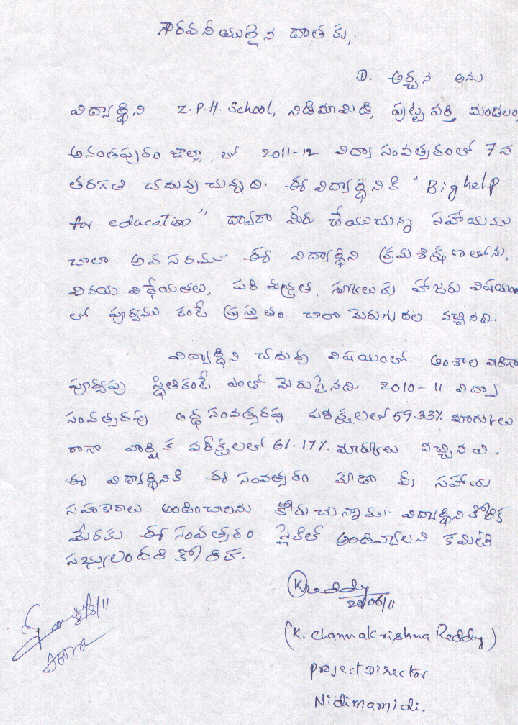 గౌరవనీయులైన దాతకు,
D. అర్చన అను
విద్యార్థిని Z.P.H. School, నిడిమామిడి, పుట్టపర్తి మండలం,
అనంతపురం జిల్లా లో 2011-12 విద్యా సంవత్సరంలో 7వ
తరగతి చదువుచున్నది. ఈ విద్యార్థినికి "Big help
for education" ద్వారా మీరు చేయుచున్న సహాయము
చాలా అవసరము. ఈ విద్యార్థిని క్రమశిక్షణలోను,
వినయ విధేయతలు, పరిశుభ్రత, స్కూలుకు హాజరు విషయం
లో పూర్వము కంటే ప్రస్తుతం చాలా మెరుగుదల వచ్చినది.
విద్యార్థిని చదువు విషయంలో
పూర్వపు స్థితికంటే ఎంతో మెరుగైనది. 2010-11 విద్యా
సంవత్సరపు అర్ధ సంవత్సరపు పరీక్షలలో 59.33% మార్కులు
రాగా వార్షిక పరీక్షలలో 61.17% మార్కులు వచ్చినవి.
ఈ విద్యార్థినికి ఈ సంవత్సరం కూడా మీ సహాయ
సహకారాలు అందించాలని కోరుచున్నాము. విద్యార్థిని కోరిక
మేరకు ఈ సంవత్సరం సైకిల్ అందివ్వాలని కమిటీ
సభ్యులందరి కోరిక.
K Reddy
22/06/11
(K. channakrishna Reddy)
project Director
Nidimamidi.